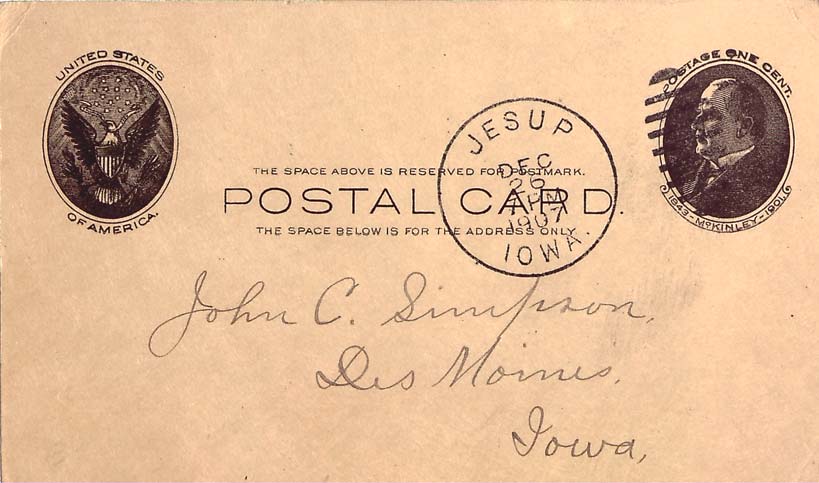 UNITED STATES
OF AMERICA.
POSTAGE ONE CENT.
1843-McKINLEY-1901
JESUP
DEC
26
PM
1907
IOWA.
THE SPACE ABOVE IS RESERVED FOR POSTMARK.
POSTAL CARD.
THE SPACE BELOW IS FOR THE ADDRESS ONLY
John C. Simpson,
Des Moines,
Iowa,